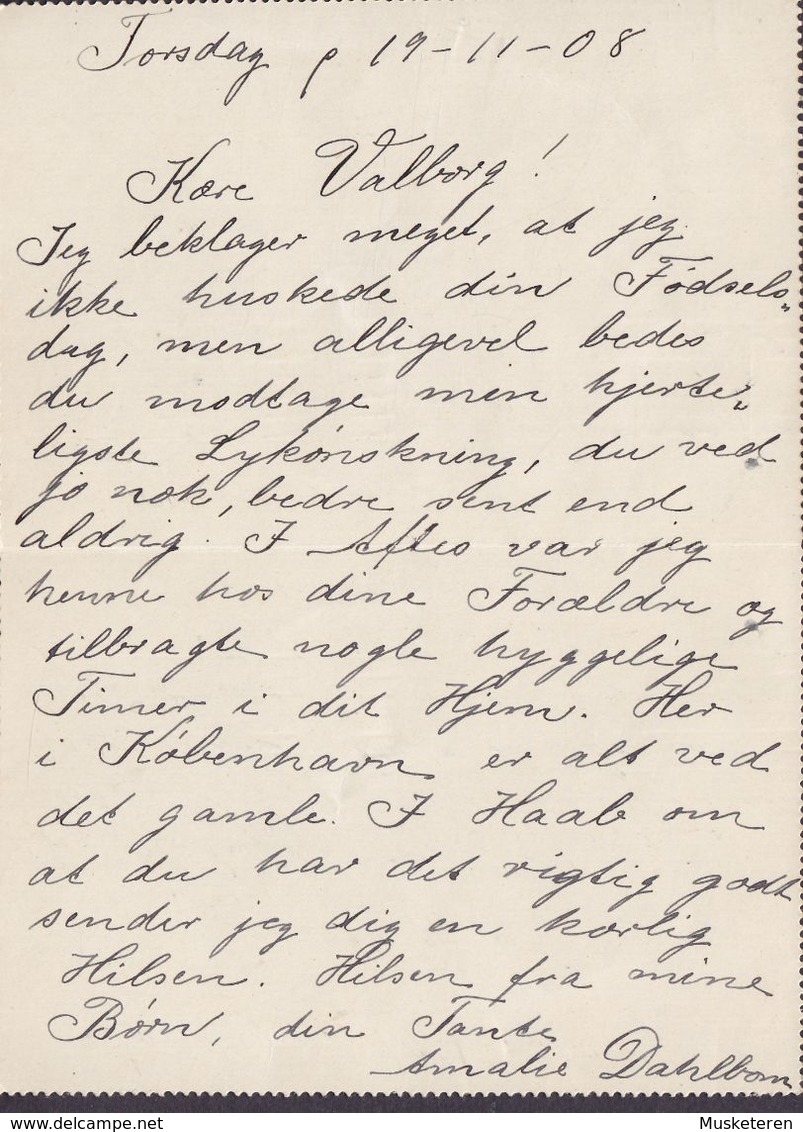 Torsdag d 19-11-08
Kære Valborg!
Jeg beklager meget, at jeg
ikke huskede din Fødsels„
dag, men alligevel bedes
du modtage min hjerte„
ligste Lykønskning, du ved
jo nok, bedre sent end
aldrig. I Aftes var jeg
henne hos dine Forældre og
tilbragte nogle hyggelige
Timer i dit Hjem. Her
i København er alt ved
det gamle. I Haab om
at du har det rigtig godt
sender jeg dig en kærlig
Hilsen. Hilsen fra mine
Børn, din Tante
Amalie Dahlbom
Musketeren